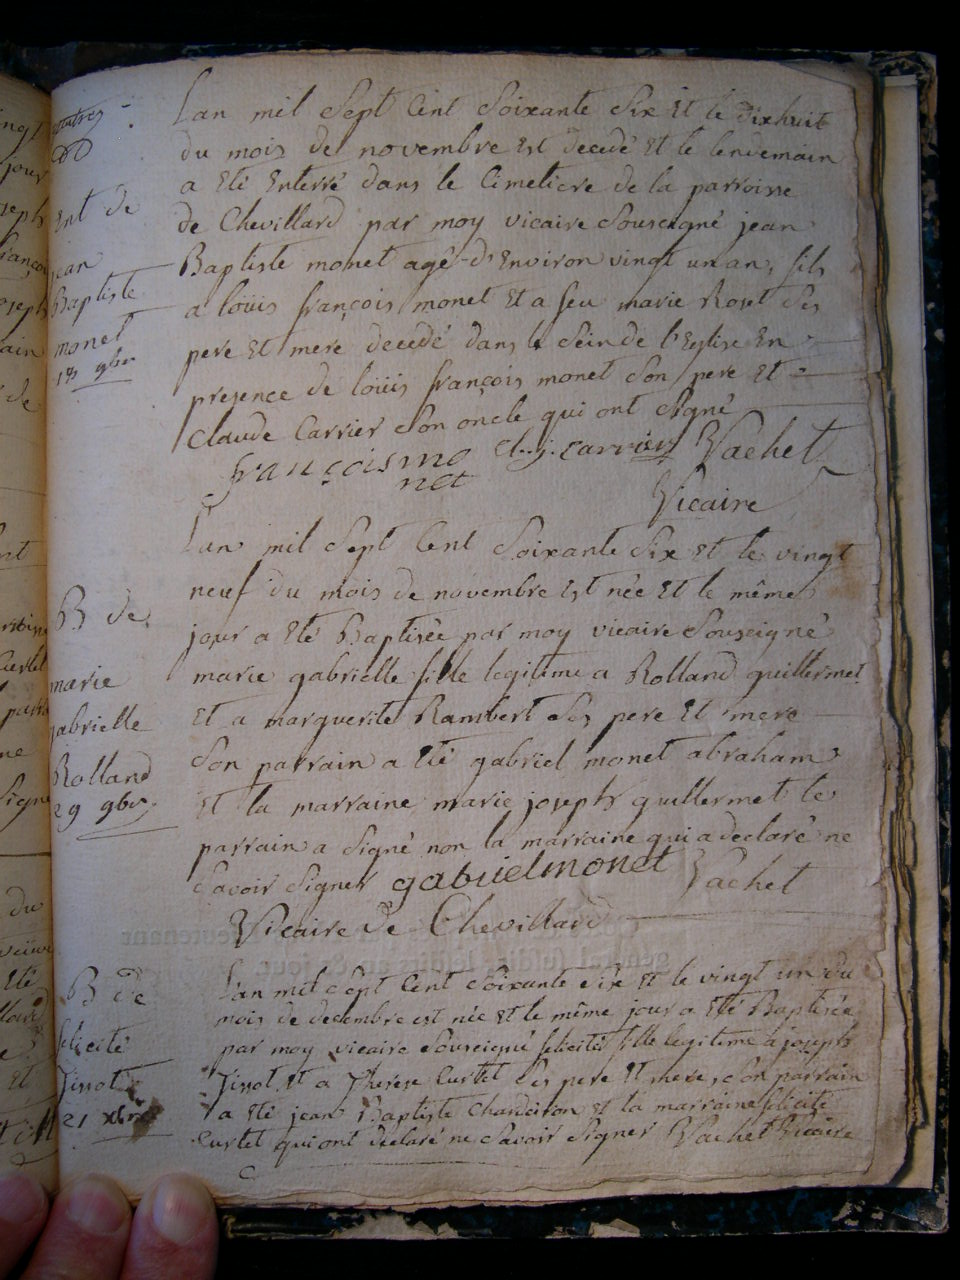 Lan mil Sept Cent Soixante Six Et le dixhuit
du mois de novembre Est decedé Et le lendemain
a Eté Enterré dans le Cimetiere de la parroisse
de Chevillard par moy vicaire Souseigné jean
Baptiste monet agé d'Environ vingt un an, fils
a loüis françois monet Et a feu marie Roset Ses
pere Et mere decedé dans le Sein de l'Eglise En
presence de loüis françois monet Son pere Et
Claude Carrier Son oncle qui ont Signé
françois mo
net
cl. j. carrier Vachet
Vicaire
Ent de
jean
Baptiste
monet
18 9bre
Lan mil Sept Cent Soixante Six Et le vingt
neuf du mois de novembre Est née Et le même
jour a Eté Baptisée par moy vicaire Souseigné
marie gabrielle fille legitime a Rolland guillermet
Et a marguerite Rambert Ses pere Et mere
Son parrain a Eté gabriel monet abraham
Et la marraine marie joseph guillermet le
parrain a Signé non la marraine qui a declaré ne
Savoir Signer gabrielmonet Vachet
Vicaire de Chevillard
B de
marie
gabrielle
Rolland
29 9bre
L'an mil Sept Cent Soixante Six Et le vingt un du
mois de decembre est née Et le même jour a Eté Baptisée
par moy vicaire Souseigné felicité fille legitime a joseph
Jissot Et a Therese Curtet Ses pere Et mere, Son parrain
a Eté jean Baptiste Chardeiron Et la marraine felicité
Curtet qui ont declaré ne Savoir Signer Vachet Vicaire
B de
felicité
Jissot
21 xbre